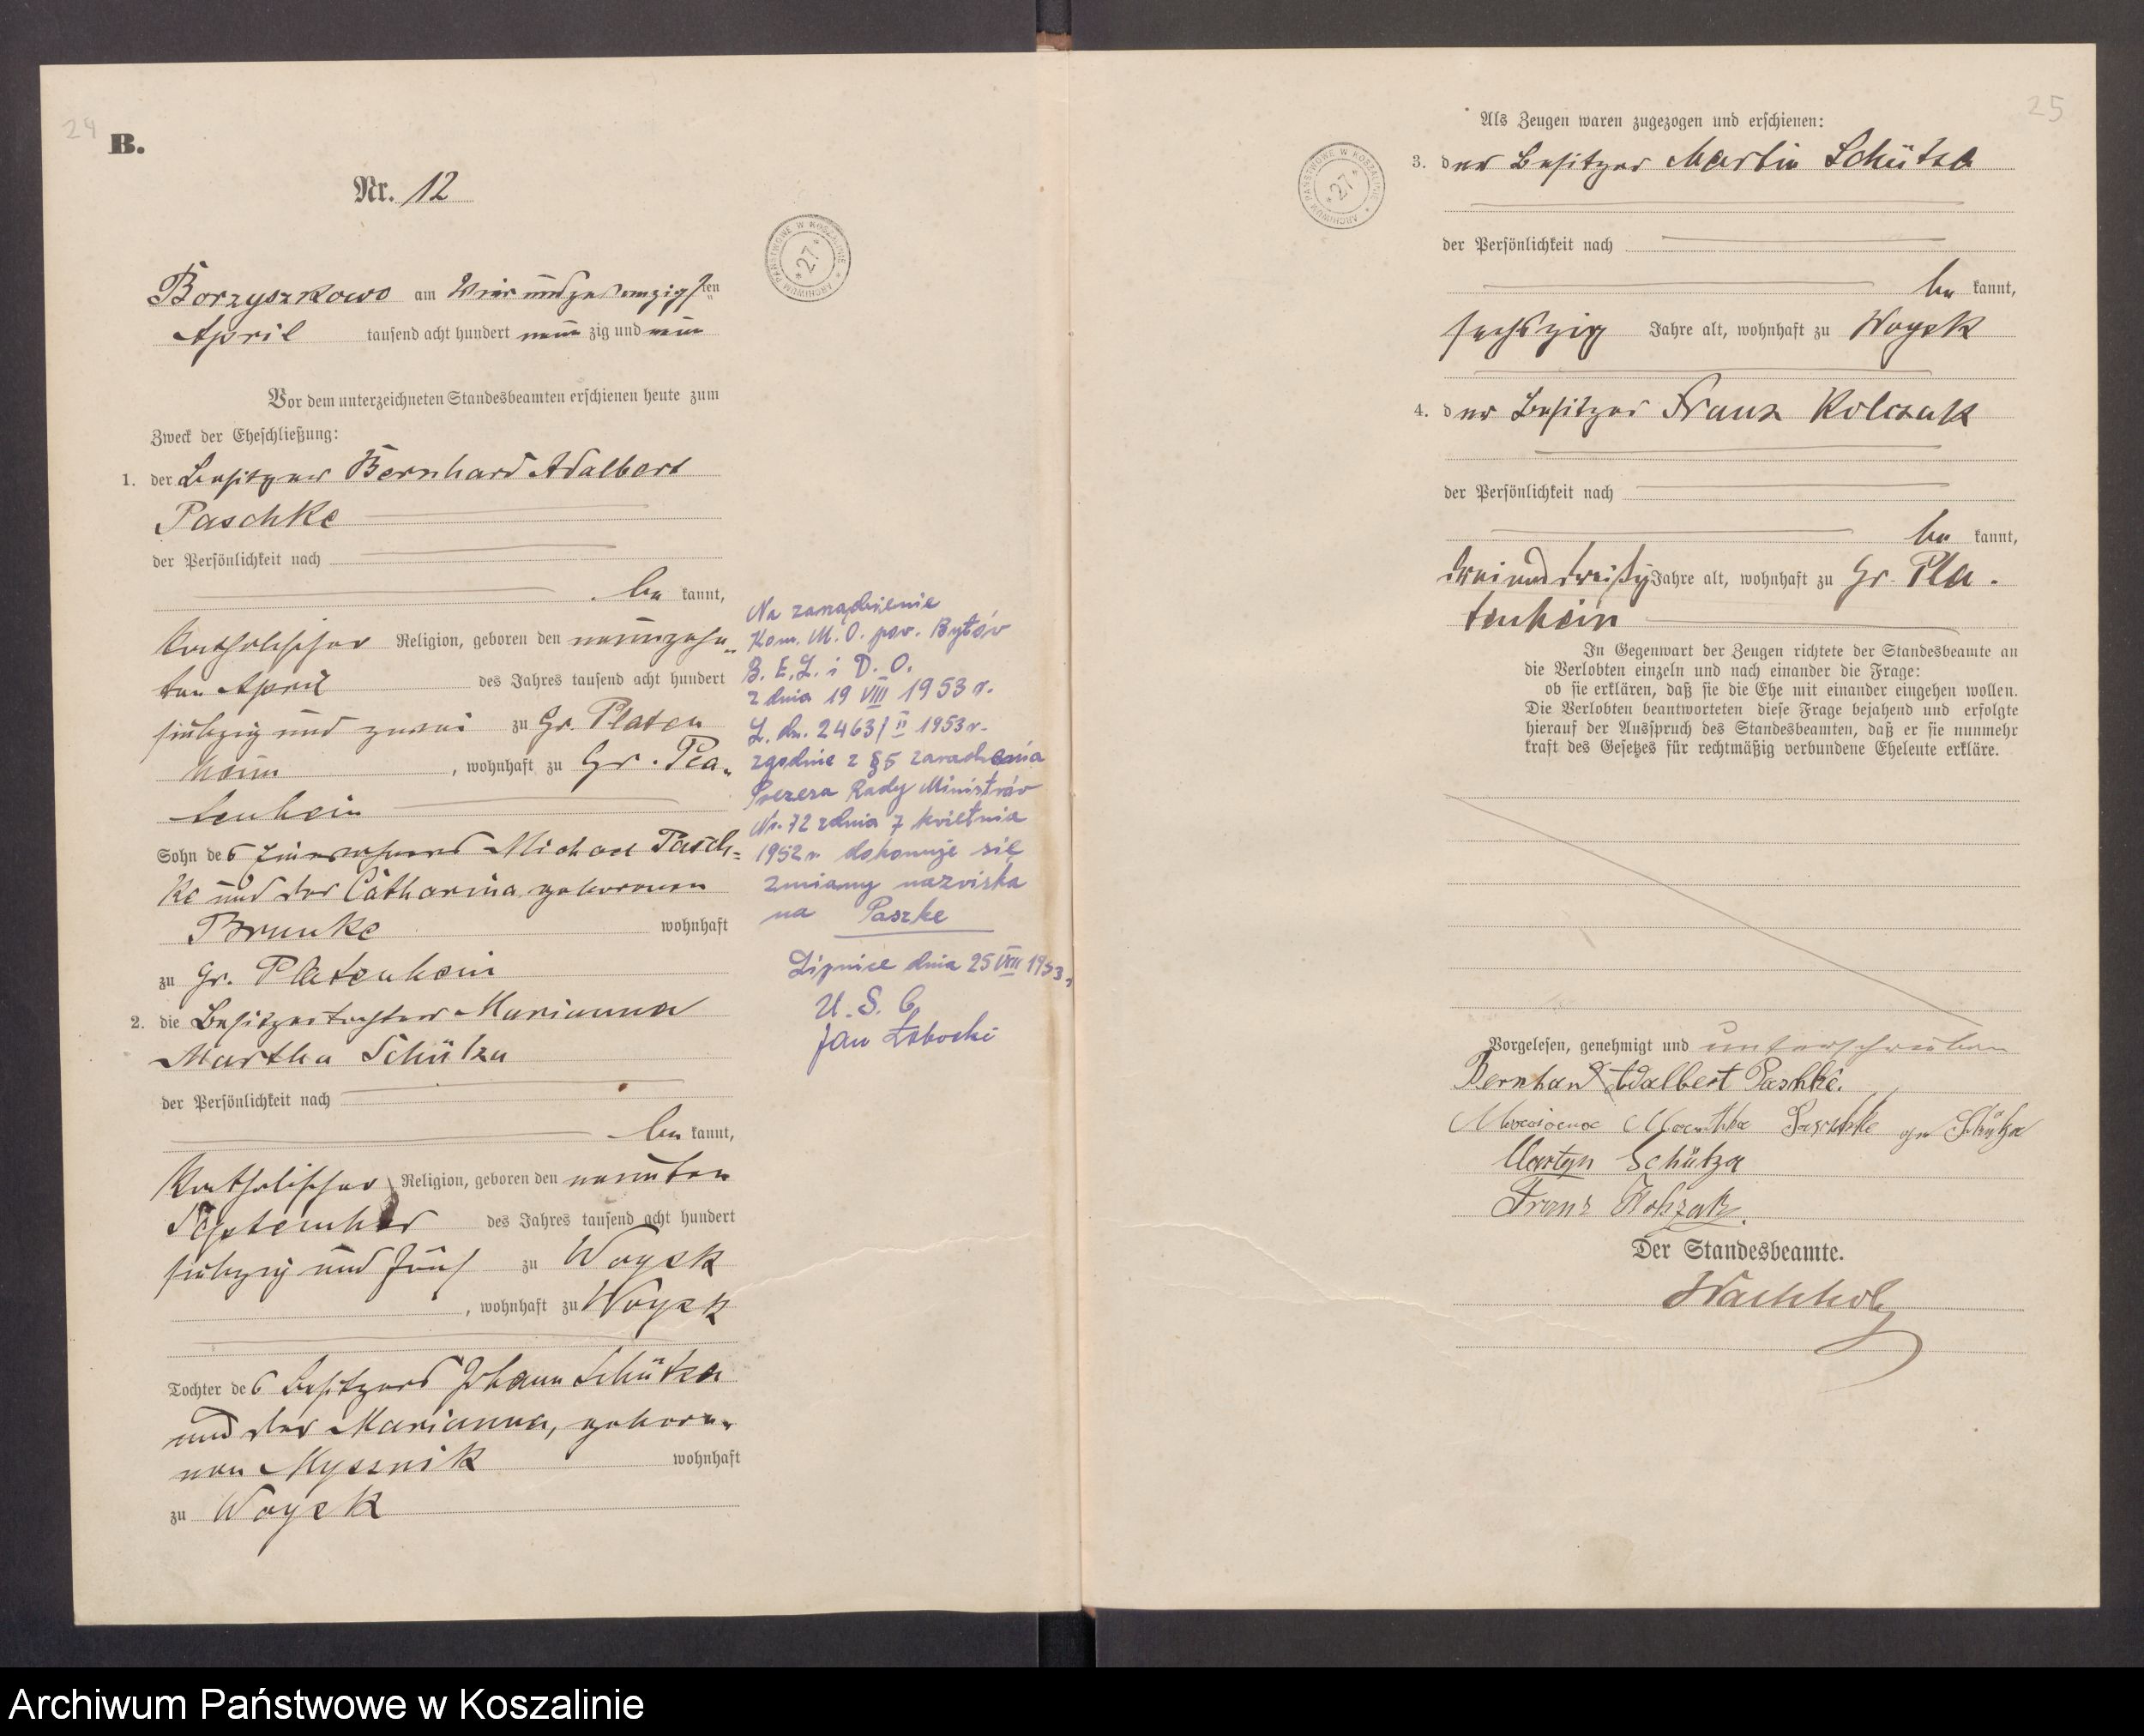 24
B.
Nr. 12
Borzyszkowo am Vier und zwanzigsten
April tausend acht hundert neun zig und neun
Vor dem unterzeichneten Standesbeamten erschienen heute zum
Zweck der Eheschließung:
1. der Besitzer Bernhard Adalbert
Paschke
der Persönlichkeit nach
be kannt,
katholischer Religion, geboren den neunzehn„
ten April des Jahres tausend acht hundert
siebzig und zwei zu Gr. Platen
heim, wohnhaft zu Gr. Pla„
tenheim
Sohn des Einwohners Michael Pasch=
ke und der Catharina geborenen
Brunke wohnhaft
zu Gr. Platenheim
2. die Besitzertochter Marianna
Martha Schütza
der Persönlichkeit nach
be kannt,
katholischer Religion, geboren den neunten
September des Jahres tausend acht hundert
siebzig und fünf zu Woysk
, wohnhaft zu Woysk
Tochter des Besitzers Johann Schütza
und der Marianna, gebore„
nen Myssnik wohnhaft
zu Woysk
ARCHIWUM PAŃSTWOWE W KOSZALINIE
*27*
Na zarządzienie
Kom. M. O. pow. Bytów
B. E. L. i D. O.
z dnia 19 VIII 1953 r.
L. dz. 2463/II 1953 r.
zgodnie z §5 zarządzenia
Prezesa Rady Ministrów
Nr. 72 z dnia 7 kwietnia
1952 r. dokonuje się
zmiany nazwiska
na Paszke
Lipnice dnia 25 VIII 1953 r.
U. S. C.
Jan
25
Als Zeugen waren zugezogen und erschienen:
ARCHIWUM PAŃSTWOWE W KOSZALINIE
*27*
3. der Besitzer Martin Schütza
der Persönlichkeit nach
be kannt,
sechszig Jahre alt, wohnhaft zu Woysk
4. der Besitzer Franz Kolczak
der Persönlichkeit nach
be kannt,
dreiunddreißig Jahre alt, wohnhaft zu Gr. Pla-
tenheim
In Gegenwart der Zeugen richtete der Standesbeamte an
die Verlobten einzeln und nach einander die Frage:
ob sie erklären, daß sie die Ehe mit einander eingehen wollen.
Die Verlobten beantworteten diese Frage bejahend und erfolgte
hierauf der Ausspruch des Standesbeamten, daß er sie nunmehr
kraft des Gesetzes für rechtmäßig verbundene Eheleute erkläre.
Vorgelesen, genehmigt und unterschrieben
Bernhard Adalbert Paschke.
Marianna Martha Paschke geb Schütza
Martyn Schütza
Franz Kolczak.
Der Standesbeamte.
Wachholz
Archiwum Państwowe w Koszalinie